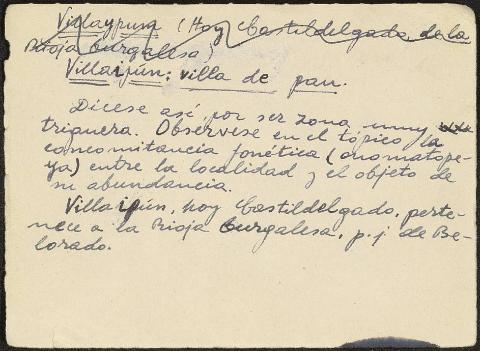 Villaypun (Hoy Castildelgado, de la
Rioja burgalesa)
Villaipún: villa de pan.
Dícese así por ser zona muy
triguera. Obsérvese en el tópico la
concomitancia fonética (onomatope-
ya) entre la localidad y el objeto de
su abundancia.
Villaipún, hoy Castildelgado, perte-
nece a la Rioja burgalesa, p.j. de Be-
lorado.